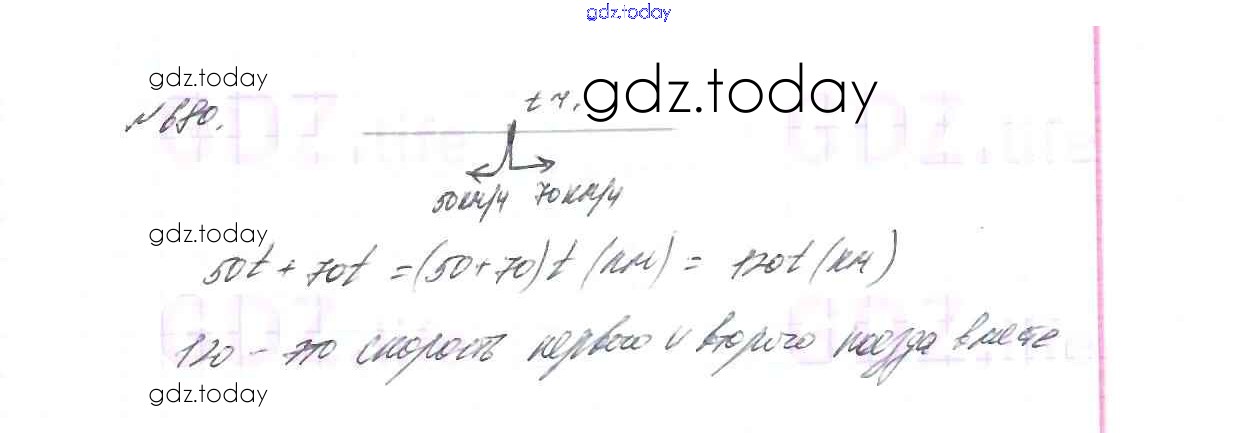 gdz.today
gdz.today
№680.
t ч.
gdz.today
50км/ч 70км/ч
gdz.today
50t + 70t = (50+70)t (км) = 120t (км)
120 – это скорость первого и второго поезда вместе
gdz.today